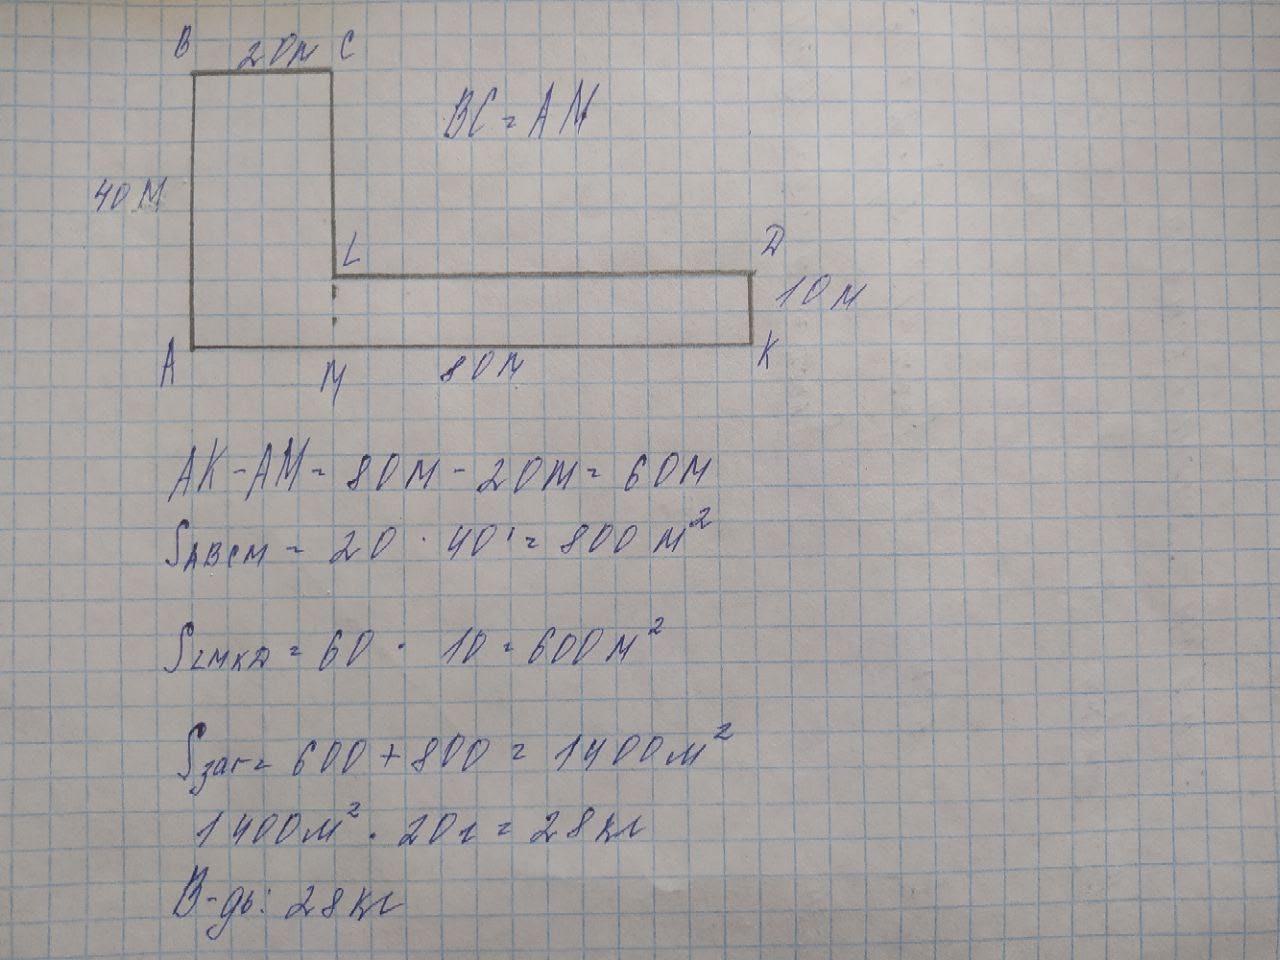 B 20м C
BC = AM
40 м
L
D
10 м
A
M
80м
K
AK - AM = 80м - 20м = 60м
SABCM = 20 · 40 = 800 м²
SLMKD = 60 · 10 = 600 м²
Sзаг = 600 + 800 = 1400 м²
1400 м² · 20г = 28 кг
В-дь: 28 кг